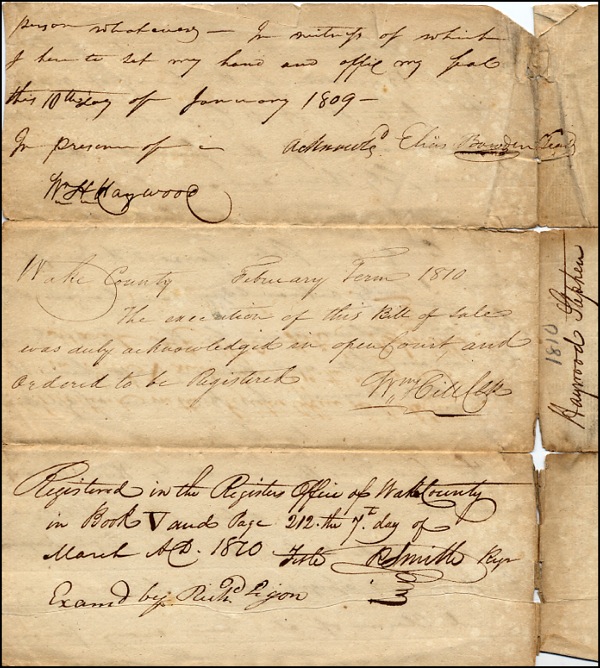 person whatever — In witness of which
I here to set my hand and affix my seal
this 10th day of January 1809 —
In presence of — Acknowld Elias Bowden Seal
Wm H Haywood
Wake County February Term 1810
The execution of this Bill of sale
was duly acknowledged in open Court, and
Ordered to be Registered Wm Hill Clk
Registered in the Registers Office of Wake County
in Book V and Page 212 the 7th day of
March A.D. 1810 Teste R Smith Regr
Examd by Richd Ligon
1810
Haywood Stephen